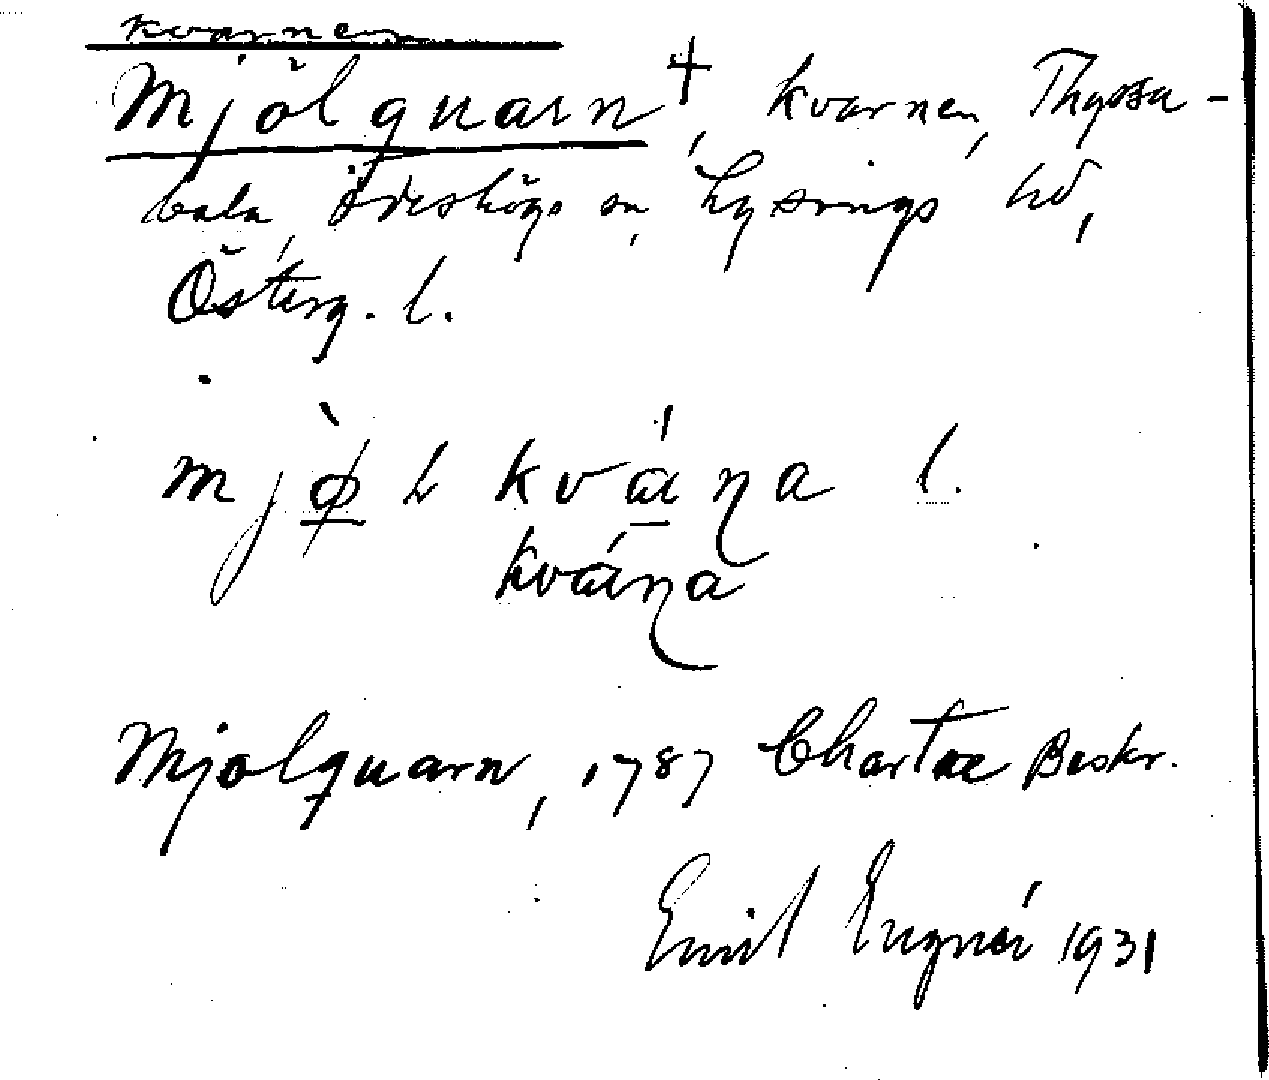 kvarnen
Mjölquarn +, kvarnen, Thyssa-
bala, Ödeshögs sn, Lysings hd,
Österg. l.
mjø̀L kváɳa l.
kváɳa
Mjolquarn, 1787 Chartae Beskr.
Emil Engnér 1931